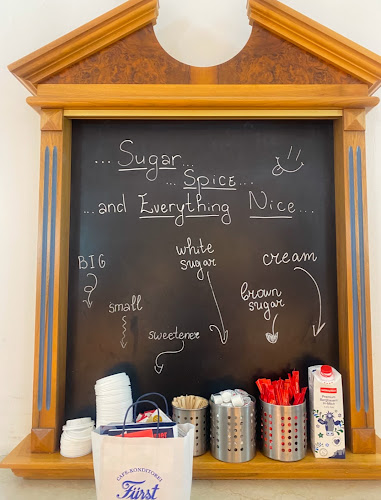 ... Sugar...
... Spice...
...and Everything Nice...
BIG
white
sugar
cream
small
brown
sugar
sweetener
CAFE-KONDITOREI
Fürst